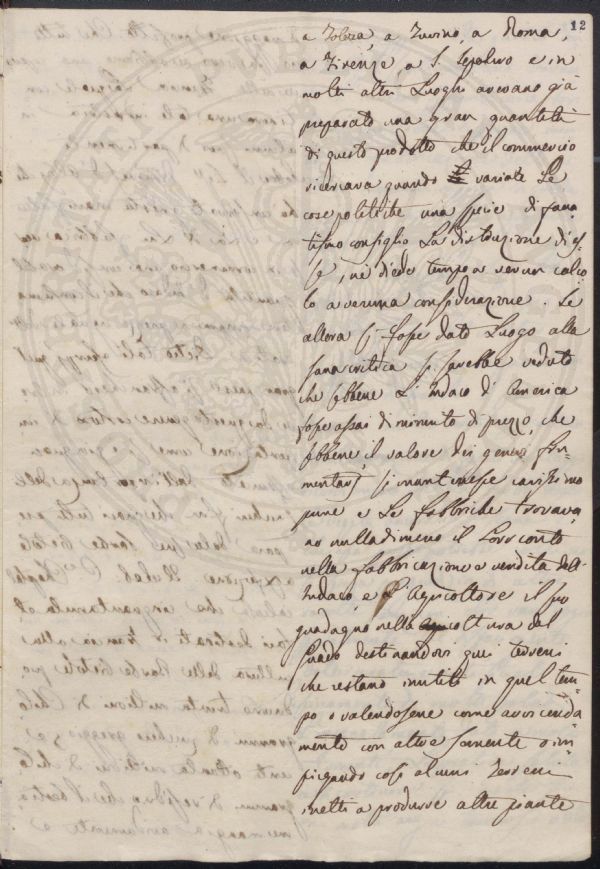 12
a Tolosa, a Torino, a Roma,
a Firenze, a S. Sepolcro e in
molti altri Luoghi avevano già
preparato una gran quantità
di questo prodotto che il commercio
ricercava quando variate Le
cose politiche una specie di fana
tismo consigliò La distruzione di es
se, nè diede tempo a verun calco
lo a veruna considerazione. Se
allora si fosse dato Luogo alla
sana critica si sarebbe veduto
che sebbene L'indaco d'America
fosse assai diminuito di prezzo, che
sebbene il valore dei generi for-
mentarj si mantenesse carissimo
pure e Le fabbriche trovava
no nulladimeno il Loro conto
nella fabbricazione e vendita dell'
Indaco, e L'Agricoltore il suo
guadagno nella coltura del
Guado destinandovi quei terreni
che restano inutili in quel tem-
po o valendosene come avvicenda
mento con altre semente o im-
piegando così alcuni Terreni
inetti a produrre altre piante